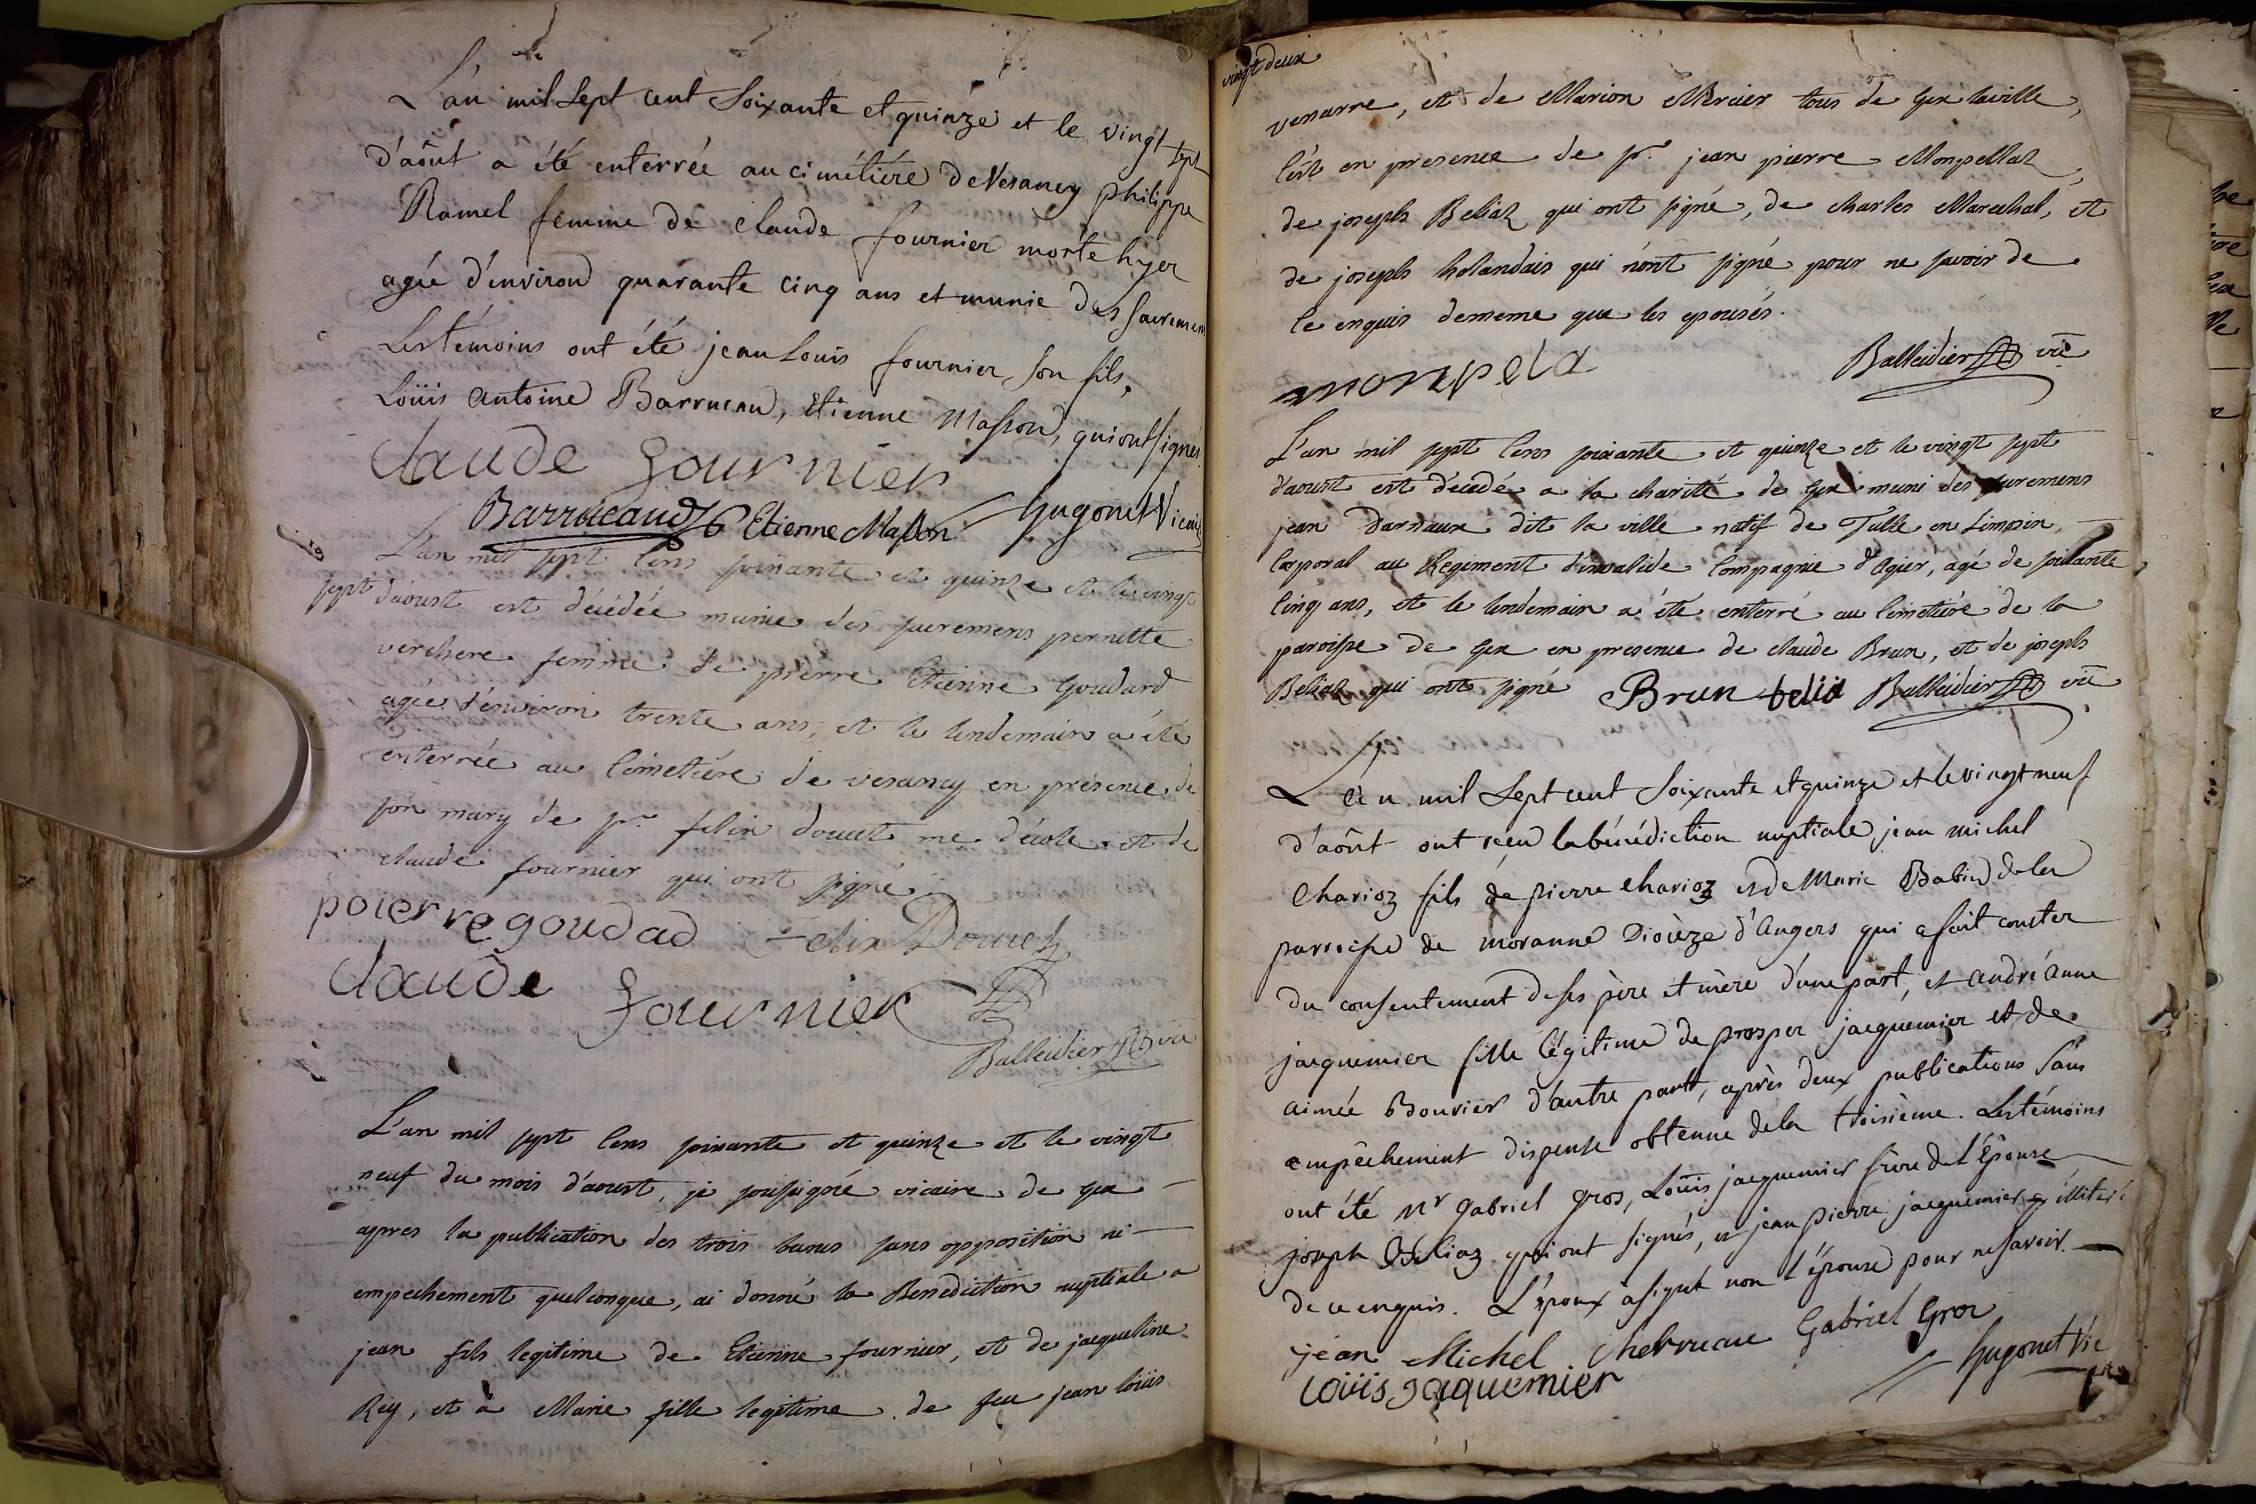 L'an mil sept cent soixante et quinze et le vingt sept
d'août a été enterrée au cimétiére de Vesancy philippe
Ramel femme de claude fournier morte hyer
agée d'environ quarante cinq ans et munie des sacremen
Les témoins ont été jean Louis fournier, son fils,
Loüis antoine Barrucand, Etienne Masson, qui ont signés
claude fournier
Barrucand Etienne Masson hugonet Vicaire
L'an mil sept cens soixante et quinze et le vingt
sept d'aoust est décédée munie des sacremens pernette
verchere femme de pierre Etienne Goudard
agée d'environ trente ans, et le lendemain a été
enterrée au cimetiére de vesancy en présence de
son mary de sr. felix douet me d'école et de
claude fournier qui ont signé
poierre goudad felix Douet
claude fournier
Balleidier vic
L'an mil sept cens soixante et quinze et le vingt
neuf du mois d'aoust, je soussigné vicaire de gex
apres la publication des trois banns sans opposition ni
empechement quelconque, ai donné la Benediction nuptiale a
jean fils legitime de Etienne fournier, et de jacqueline
Rey, et a Marie fille legitime de feu jean loüis
vingt deux
venarre, et de Marion Mercier tous de gex laville,
c'est en presence de sr. jean pierre Monpellaz,
de joseph Beliaz qui ont signé, de charles Marechal, et
de joseph holandais qui n'ont signé pour ne savoir de
ce enquis demême que les epousés.
monpela Balleidier vic
L'an mil sept cens soixante et quinze et le vingt sept
d'aoust est décédé a la charité de gex muni des sacremens
jean Darnaux dit la ville natif de Tulle en Limosin,
Caporal au Regiment d'invalide Compagnie d'Agier, agé de soixante
cinq ans, et le lendemain a été enterré au cimetiére de la
paroisse de gex en presence de claude Brun, et de joseph
Beliaz qui ont signé Brun belia Balleidier vic
L'an mil sept cent soixante et quinze et le vingt neuf
d'août ont reçu la bénédiction nuptiale jean michel
Charioz fils de pierre charioz et de Marie Babin de la
parroisse de moranne Diocèze d'Angers qui a fait conster
du consentement de ses père et mère d'une part, et andré anne
jacquemier fille légitime de prosper jacquemier et de
aimée Bouvier d'autre part, après deux publications sans
empêchement dispense obtenue de la troisième. Les témoins
ont été mr gabriel gros, Loüis jacquemier frère de L'épouse
joseph Béliaz qui ont signés, et jean pierre jacquemier illiteré
de ce enquis. L'époux a signé non l'épouse pour ne savoir
jéan Michel Chevrueau Gabriel Gros
Loüis jaquemier hugonet Vic